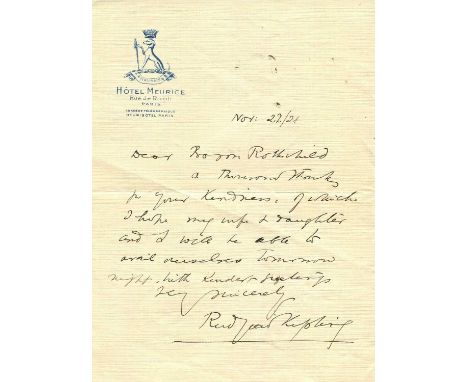 HÔTEL MEURICE
Rue de Rivoli
PARIS
MEURISOTEL PARIS
Nov: 22/21
Dear Baron Rothschild
a thousand thanks
for your kindness, of which
I hope my wife & daughter
and I will be able to
avail ourselves tomorrow
night. With kindest greetings
Very sincerely
Rudyard Kipling